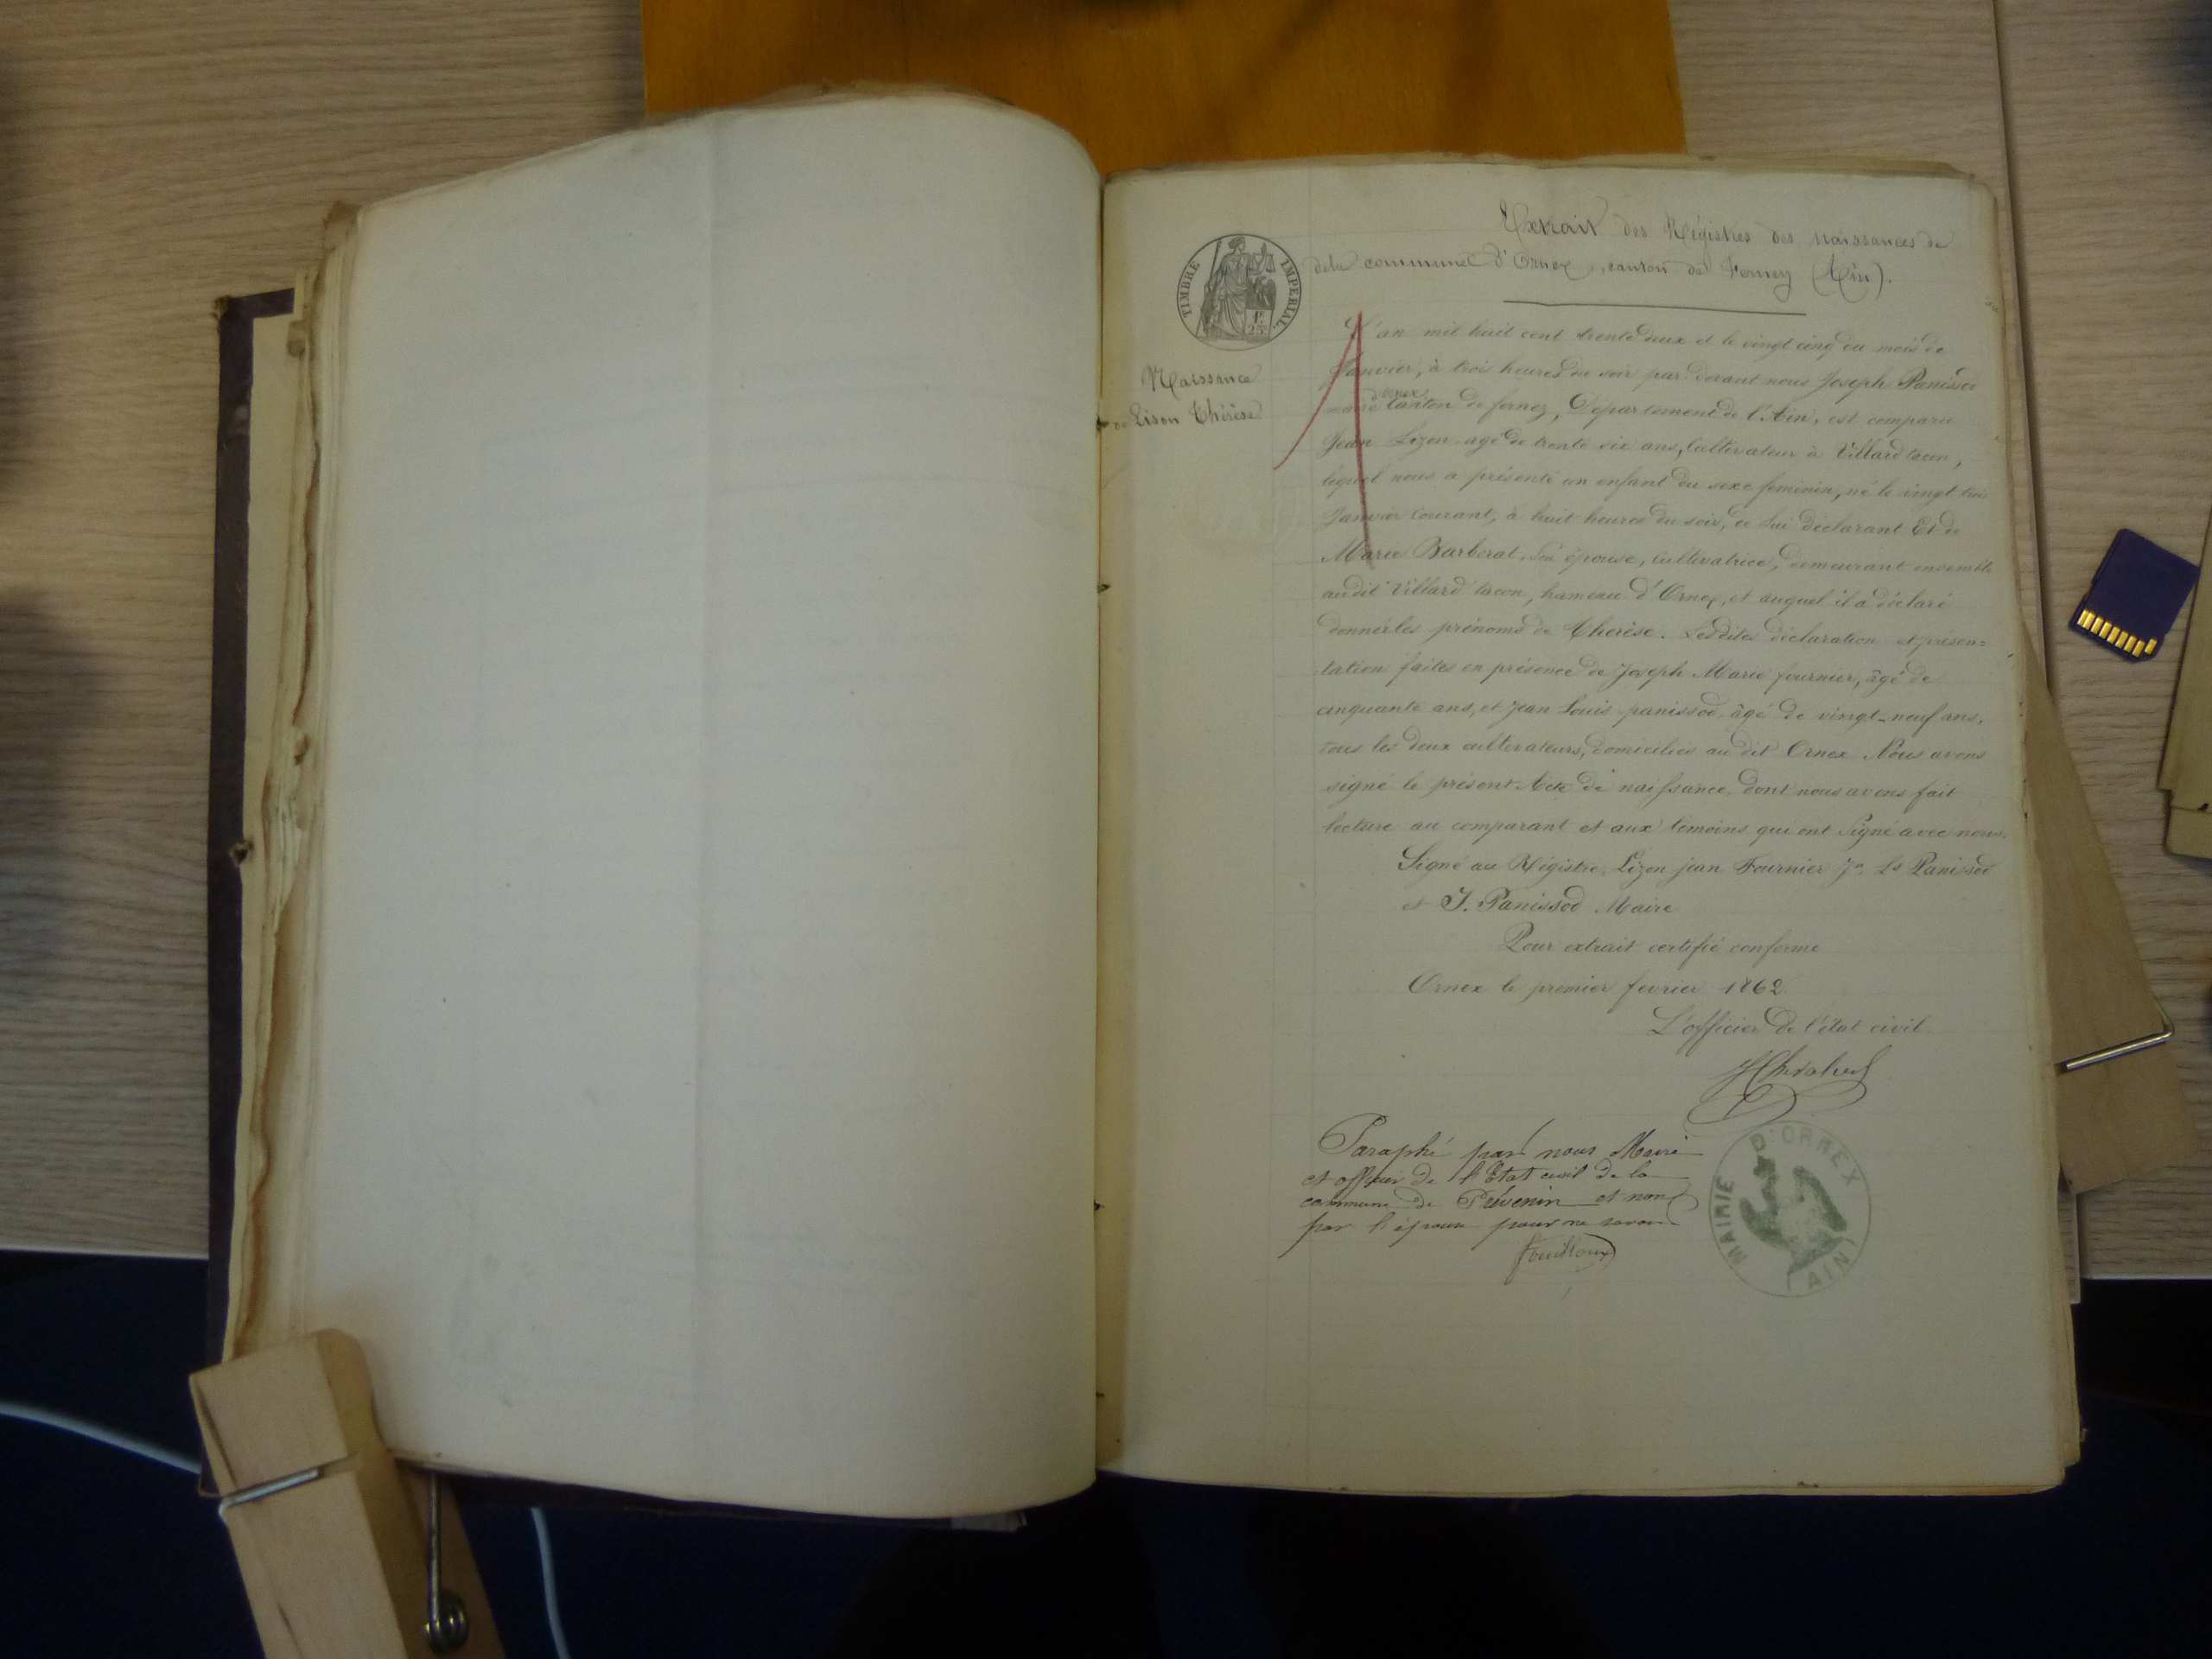 Extrait des Régistres des naissances de
dela commune d'Ornex, canton de Ferney (Ain).
TIMBRE IMPERIAL
1F 25c
Naissance
de Lison Thérèse
L'an mil huit cent trente deux et le vingt cinq du mois de
Janvier, à trois heures du soir par devant nous Joseph Panissod
maire d'ornex Canton de ferney, Département de l'Ain, est comparu
Jean Lizon agé de trente six ans, Cultivateur à Villard tacon,
lequel nous a présenté un enfant du sexe feminin, né le vingt trois
Janvier courant, à huit heures du soir, de lui déclarant Et de
Marie Barberat, son épouse, cultivatrice, demeurant ensemble
audit Villard tacon, hameau d'Ornex, et auquel il a déclaré
donner les prénoms de Thérèse. Lesdites déclaration et présen=
tation faites en présence de Joseph Marie fournier, âgé de
cinquante ans, et Jean Louis panissod âgé de vingt-neuf ans,
tous les deux cultivateurs, domiciliés au dit Ornex. Nous avons
signé le présent Acte de naissance, dont nous avons fait
lecture au comparant et aux témoins qui ont signé avec nous.
Signé au Régistre, Lizon jean Fournier Jn Ls Panissod
et J. Panissod Maire
Pour extrait certifié conforme
Ornex le premier fevrier 1862
L'officier de l'état civil
Paraphé par nous Maire
et officier de l'Etat civil de la
commune de Prévenin et non
par l'épouse pour ne savoir
Fouilloux
MAIRIE D'ORNEX
(AIN)